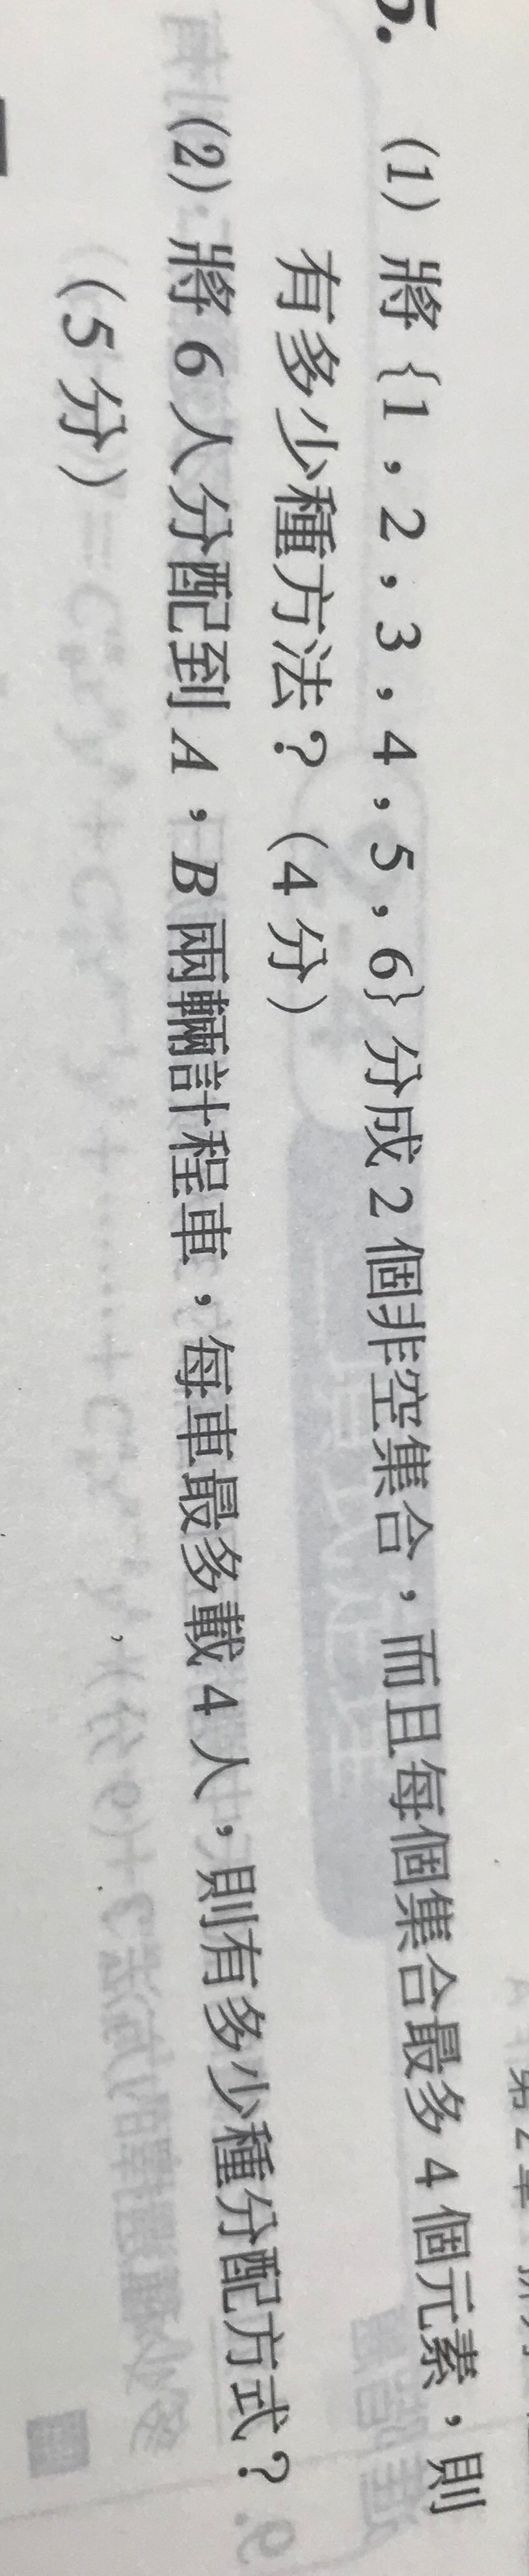 5. (1) 將 {1，2，3，4，5，6} 分成 2 個非空集合，而且每個集合最多 4 個元素，則
有多少種方法？（4 分）
(2) 將 6 人分配到 A，B 兩輛計程車，每車最多載 4 人，則有多少種分配方式？
（5 分）